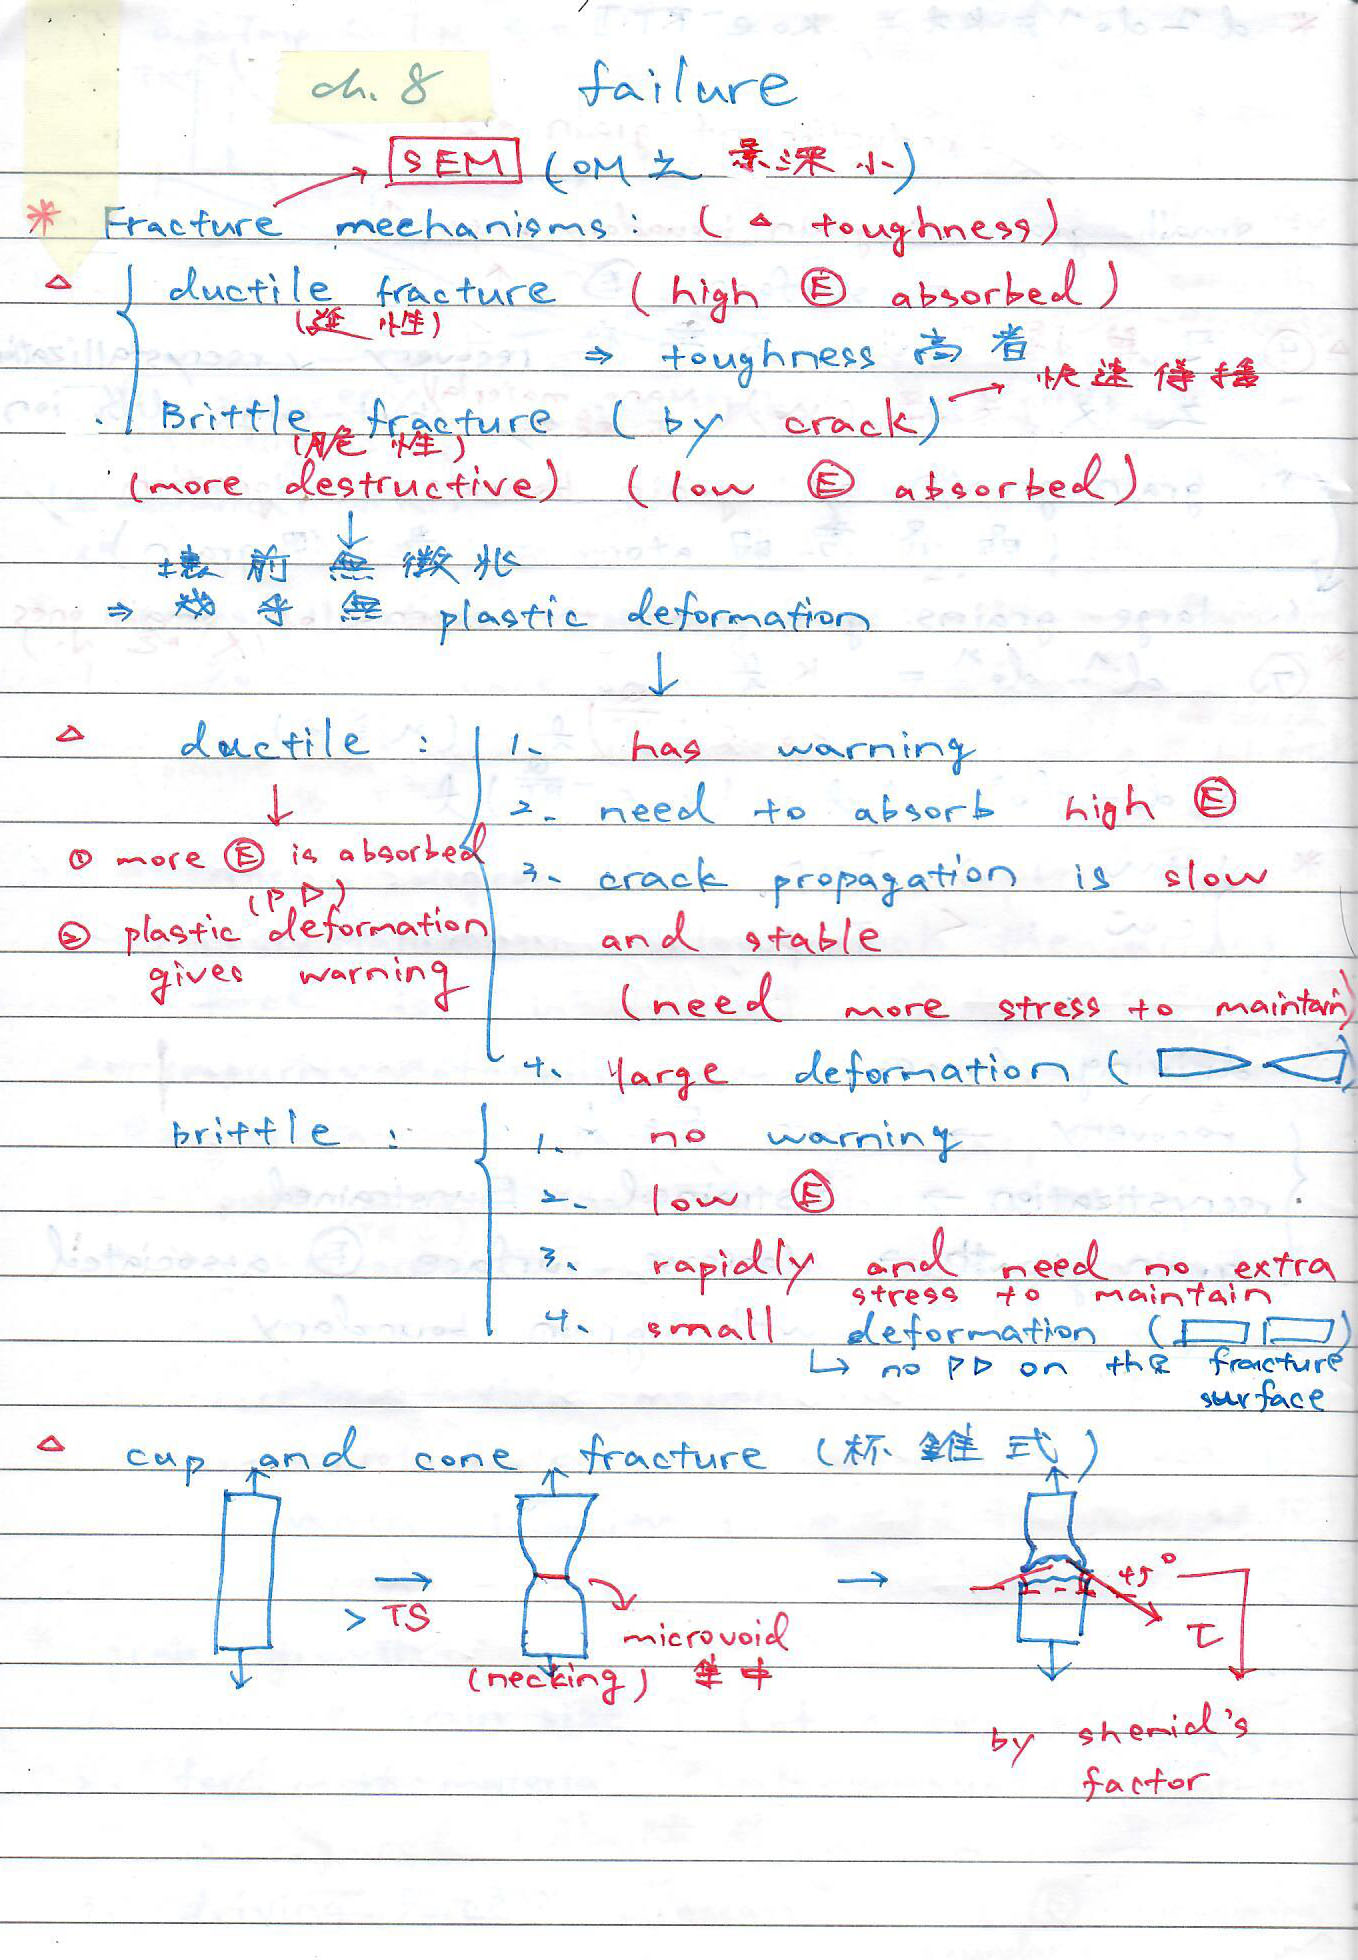 ch. 8 failure
SEM (OM之 景深小)
* Fracture mechanisms: (△ toughness)
△ ductile fracture (high Ⓔ absorbed)
(延性)
⇒ toughness 高者
快速傳播
Brittle fracture (by crack)
(脆性)
(more destructive) (low Ⓔ absorbed)
↓
壞前無徵兆
⇒ 幾乎無 plastic deformation
↓
△ ductile : 1. has warning
2. need to absorb high Ⓔ
↓
① more Ⓔ is absorbed
(PD)
② plastic deformation
gives warning
3. crack propagation is slow
and stable
(need more stress to maintain)
4. large deformation ( )
brittle : 1. no warning
2. low Ⓔ
3. rapidly and need no extra
stress to maintain
4. small deformation ( )
↳ no PD on the fracture
surface
△ cup and cone fracture (杯錐式)
→
> TS
microvoid
(necking) 集中
→
45°
τ
by shemid's
factor